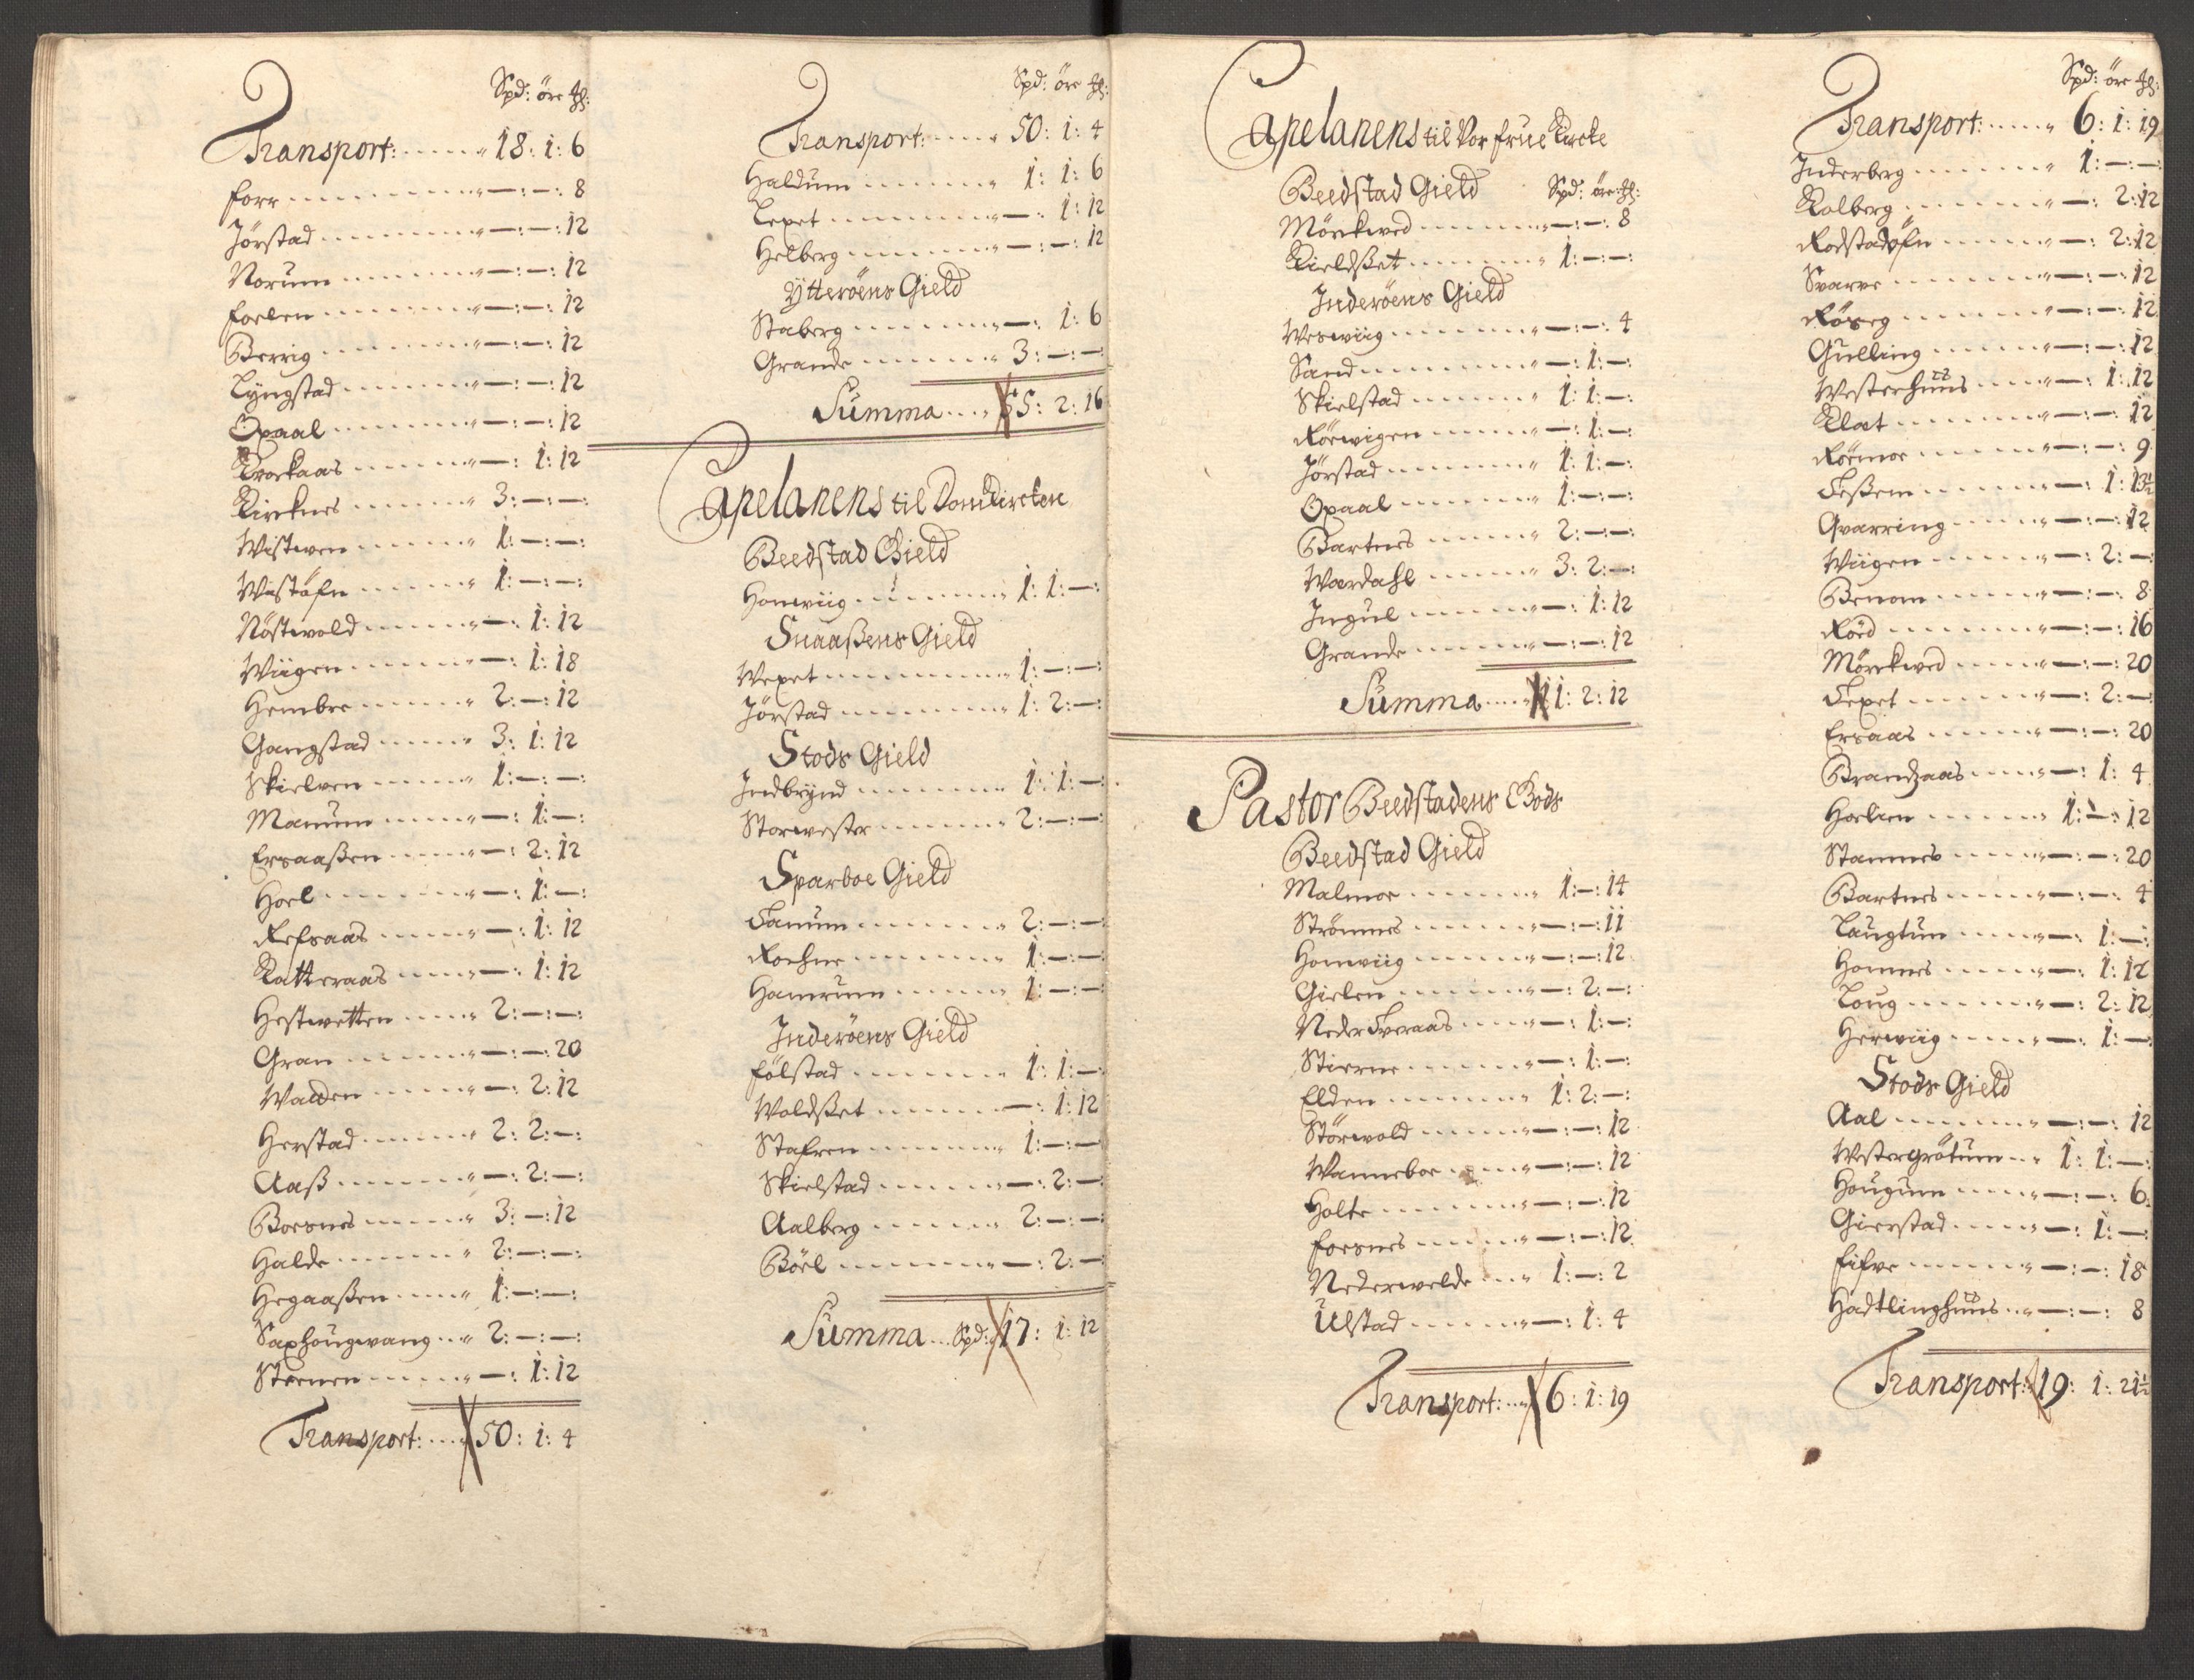 Spd: öre ℔:
Transport: 18: 1: 6
Forr —:—: 8
Jörstad —:—: 12
Norum —:—: 12
Foelen —:—: 12
Berrig —:—: 12
Lyngstad —:—: 12
Opaal —:—: 12
Trockaas —: 1: 12
Kirknes 3:—:—:
Wistwen 1:—:—:
Wistöfn 1:—:—:
Nöstwold —: 1: 12
Wiigen —: 1: 18
Hembre 2:—: 12
Gangstad 3: 1: 12
Skielven 1:—:—:
Manum —: 1:—:
Ersaaßen —: 2: 12
Hoel —: 1:—:
Refsaas —: 1: 12
Katteraas —: 1: 12
Hestwetten 2:—:—:
Gran —:—: 20
Walden —: 2: 12
Herstad 2: 2:—:
Aaß —: 2:—:
Boesnes 3:—: 12
Halde 2:—:—:
Hegaaßen 1:—:—:
Saxhougwang 2:—:—:
Steenen —: 1: 12
Transport: 50: 1: 4
Spd: öre ℔:
Transport: 50: 1: 4
Haldum 1: 1: 6
Lexet —: 1: 12
Helberg —:—: 12
Ytteröens Gield
Staberg —: 1: 6
Grande 3:—:—:
Summa 55: 2: 16
Capelanens til Domkircken
Beedstad Gield
Homviig 1: 1:—:
Snaaßens Gield
Wexet 1:—:—:
Jörstad 1: 2:—:
Stods Gield
Indbrÿnd 1: 1:—:
Storwester 2:—:—:
Sparboe Gield
Tanum 2:—:—:
Roehne 1:—:—:
Hamrum 1:—:—:
Inderöens Gield
Fölstad 1: 1:—:
Woldsßet —: 1: 12
Stafren 1:—:—:
Skielstad —: 2:—:
Aalberg 2:—:—:
Böel —: 2:—:
Summa Spd: 17: 1: 12
Capelanens til Vor frue Kircke
Beedstad Gield Spd: öre ℔:
Mörckwed —:—: 8
Kieldsßet 1:—:—:
Inderöens Gield
Weswiig —:—: 4
Sand —: 1:—:
Skielstad 1: 1:—:
Röewigen —: 1:—:
Jörstad 1: 1:—:
Opaal 1:—:—:
Bartnes 2:—:—:
Wardahl 3: 2:—:
Ingul —: 1: 12
Grande —:—: 12
Summa 11: 2: 12
Pastor Beedstadens Bods
Beedstad Gield
Malmoe 1:—: 14
Strömnes —:—: 11
Homviig —:—: 12
Gielen —: 2:—:
Neder Tveraas —: 1:—:
Stierne —: 1:—:
Elden 1: 2:—:
Störwold —:—: 12
Wanneboe —:—: 12
Holte —:—: 12
Foesnes —:—: 12
Nederwelde 1:—: 2
Ulstad —: 1: 4
Transport: 6: 1: 19
Spd: öre ℔:
Transport: 6: 1: 19
Inderberg 1:—:—
Kolberg —: 2: 12
Rodstadöfn —: 2: 12
Svarve —:—: 12
Röseg —:—: 12
Gulling —:—: 12
Westerhuus —: 1: 12
Klat —:—: 12
Röemoe —:—: 9
Teßem —: 1: 13½
Qvarring —:—: 12
Wiigen —: 2:—
Benom —:—: 8
Röed —:—: 16
Mörckwed —:—: 20
Texet —: 2:—
Ersaas —:—: 20
Brandzaas —: 1: 4
Hoelien 1:—: 12
Stamnes —:—: 20
Bartnes —:—: 4
Laugtun —: 1:—
Homnes —: 1: 12
Loug —: 2: 12
Herwiig —: 1:—
Stods Gield
Aal —:—: 12
Westergrötum 1: 1:—
Hougum —:—: 6
Gierstad —: 1:—
Fifve —:—: 18
Hadtlinghuus —:—: 8
Transport: 19: 1: 21½